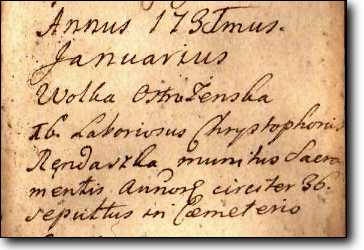 Annus 1731mus.
Januarius
Wolka Ostrożenska
16. Laboriosus Chrystophorus
Rendaszka munitus Sacra
mentis Annorũ circiter 36.
sepultus in Cæmeterio